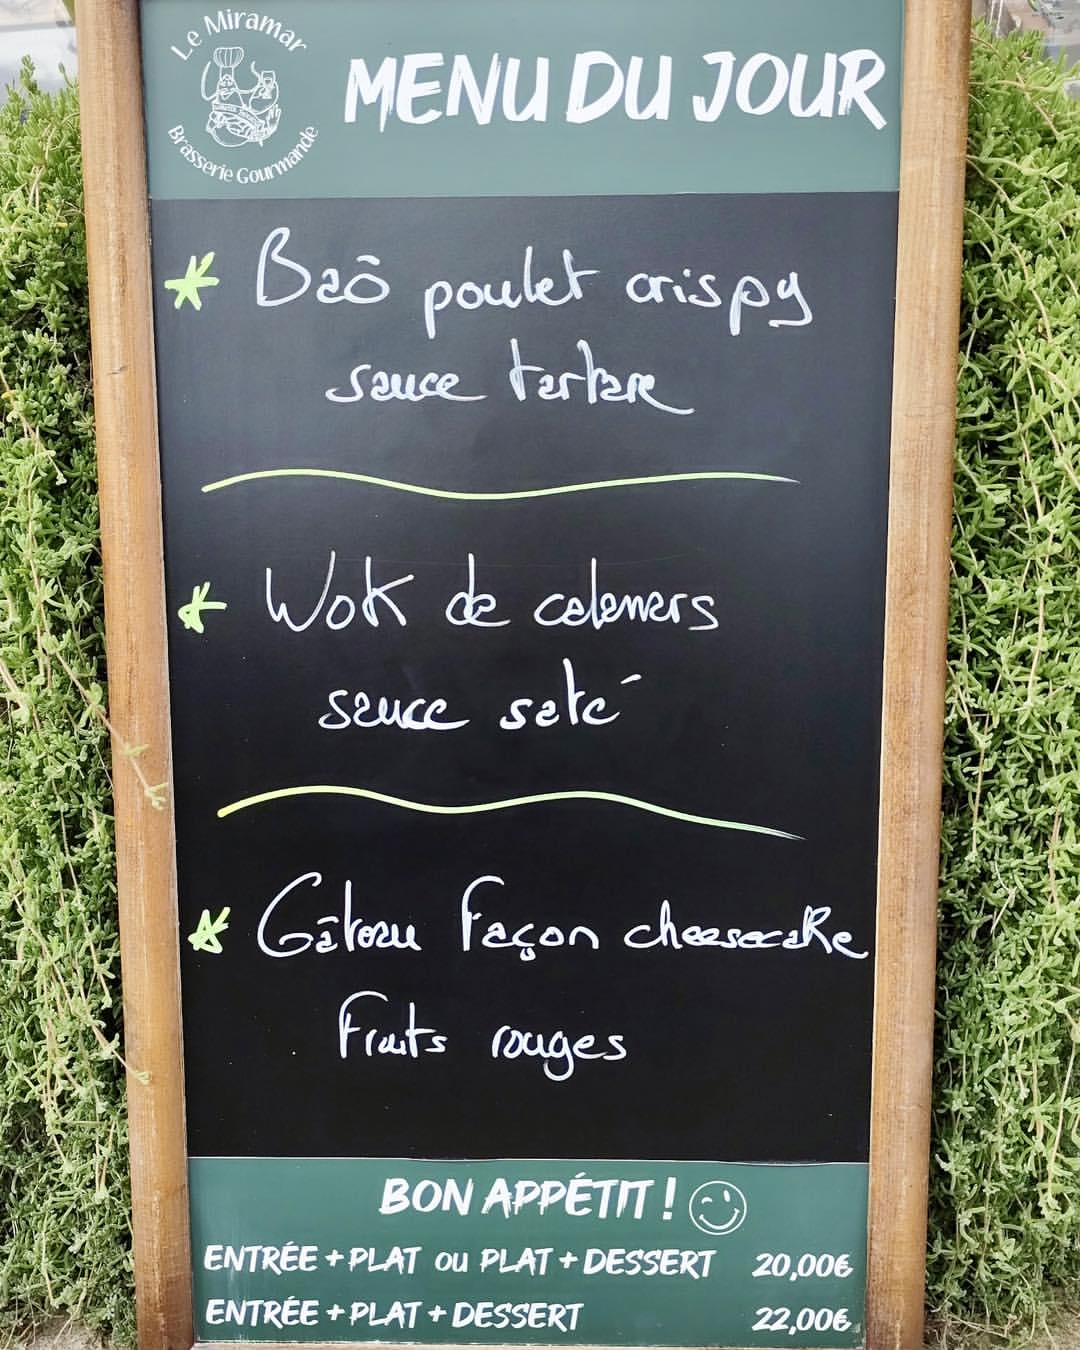 Le Miramar
Brasserie Gourmande
MENU DU JOUR
Baô poulet crispy
sauce tartare
Wok de calamars
sauce saté
Gâteau façon cheesecake
Fruits rouges
BON APPÉTIT !
ENTRÉE + PLAT OU PLAT + DESSERT 20,00€
ENTRÉE + PLAT + DESSERT 22,00€